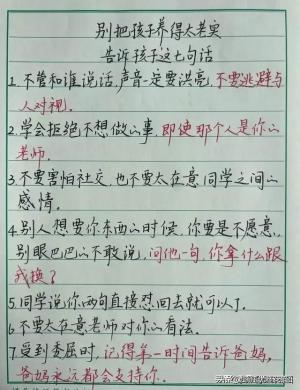 别把孩子养得太老实
告诉孩子这七句话
1.不管和谁说话,声音一定要洪亮,不要逃避与
人对视.
2.学会拒绝不想做的事,即使那个人是你的
老师.
3.不要害怕社交,也不要太在意同学之间的
感情.
4.别人想要你东西的时候,你要是不愿意,
别眼巴巴的不敢说,问他一句,你拿什么跟
我换?
5.同学说你两句直接怼回去就可以了.
6.不要太在意老师对你的看法.
7.受到委屈时,记得第一时间告诉爸妈,
爸妈永远都会支持你.